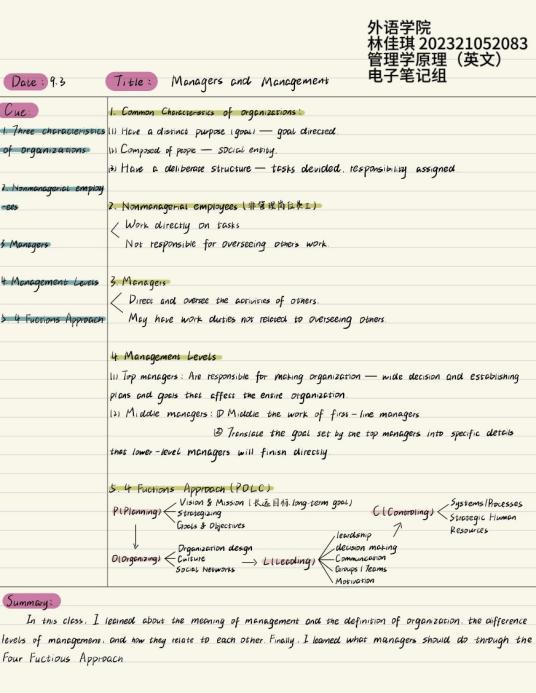 外语学院
林佳琪 202321052083
管理学原理（英文）
电子笔记组
Date: 9.3 Title: Managers and Management
Cue:
1. Three characteristics
of organizations
2. Nonmanagerial employ
-ees
3 Managers
4 Management Levels
5 4 Fuctions Approach
1. Common Characteristics of organizations:
(1) Have a distinct purpose (goal) — goal directed.
(2) Composed of peope — social entity.
(3) Have a deliberate structure — tasks devided, responsibility assigned
2. Nonmanagerial employees (非管理岗位员工)
Work directly on tasks
Not responsible for overseeing others work.
3. Managers
Direct and oversee the activities of others.
May have work duties not related to overseeing others.
4. Management Levels
(1) Top managers: Are responsible for making organization — wide decision and establishing
plans and goals that affect the entire organization.
(2) Middle managers: ① Middle the work of first-line managers
② Translate the goal set by the top managers into specific details
that lower-level managers will finish directly
5. 4 Fuctions Approach (POLC)
P(Planning)
Vision & Mission (长远目标 long-term goal)
Strategizing
Goals & Objectives
O(Organizing)
Organization design
Culture
Social Networks
L(Leading)
leardship
decision making
Communcation
Groups / Teams
Motivation
C(Controling)
Systems/Processes
Strategic Human
Resources
Summary:
In this class, I learned about the meaning of management and the definition of organization, the difference
levels of management, and how they relate to each other. Finally, I learned what managers should do through the
Four Fuctious Approach